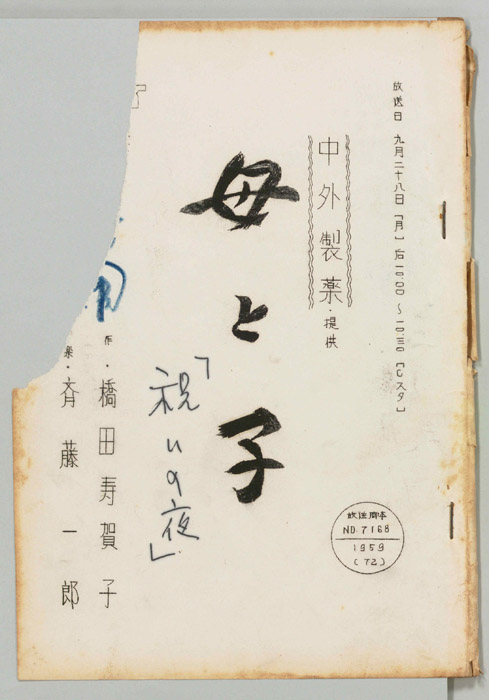 放送日 九月二十八日［月］后10:00～10:30［Cスタ］
中外製薬・提供
母と子
「祝いの夜」
作・橋田寿賀子
楽・斉藤一郎
NO.7168
1959
(72)